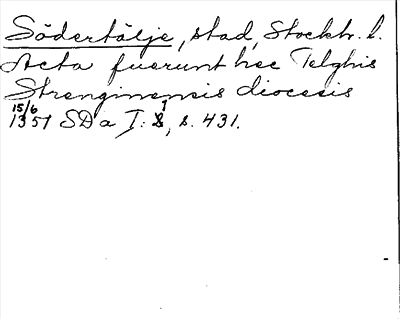 Södertälje, stad, Stockh. l.
Acta fuerunt hec Telghis
Strenginensis diocesis
15/6
1351 SDa I: 1, s. 431.